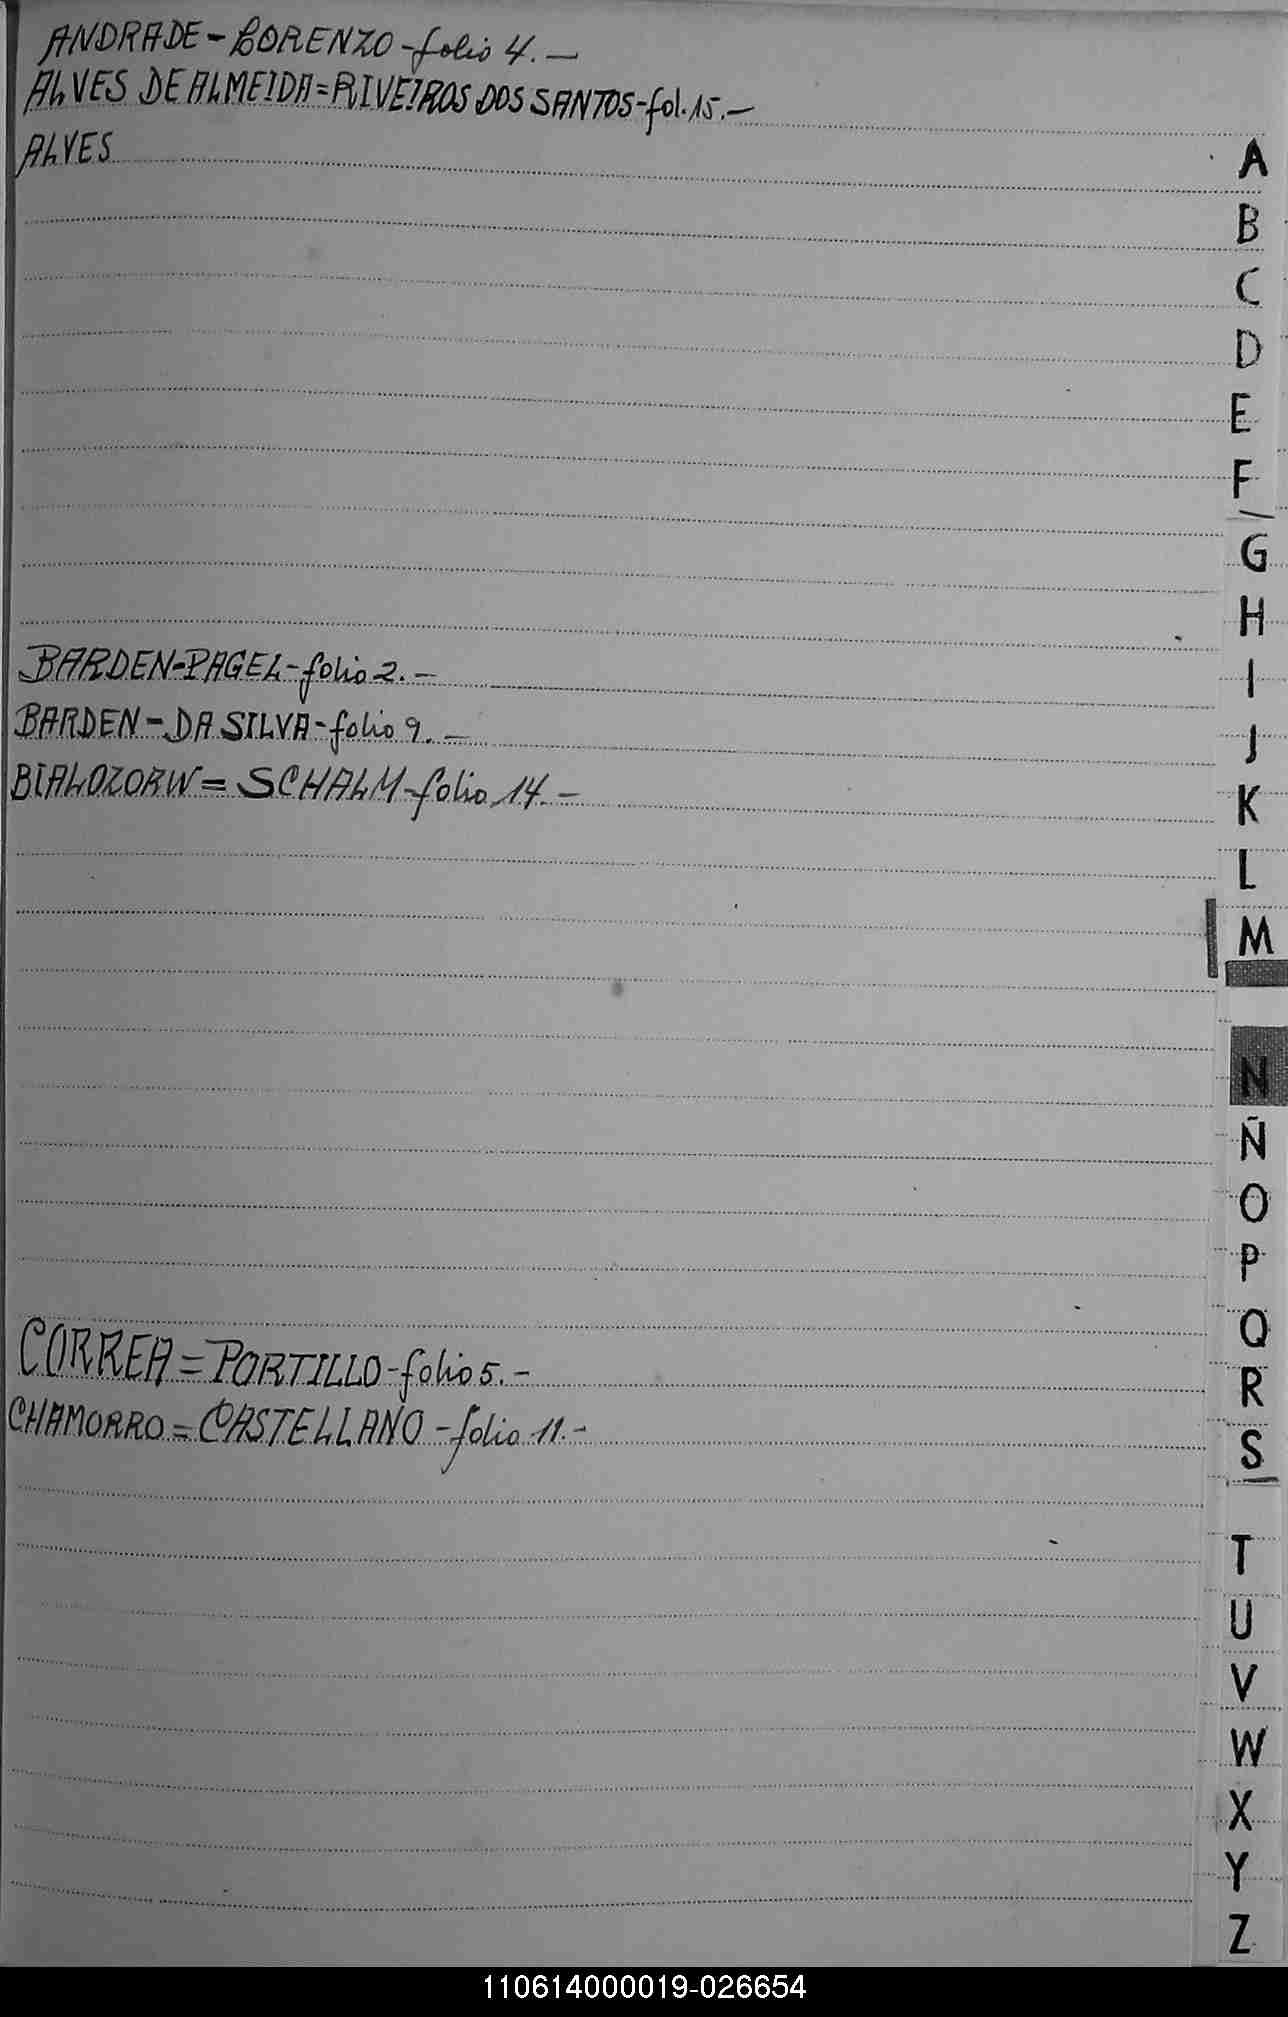 ANDRADE - LORENZO - folio 4. —
ALVES DE ALMEIDA = RIVEIROS DOS SANTOS - fol. 15. —
ALVES
A
B
C
D
E
F
G
H
I
BARDEN - PAGEL - folio 2. —
BARDEN - DA SILVA - folio 9. —
J
BIALOZORW = SCHALM - folio 14. —
K
L
M
N
Ñ
O
P
Q
CORREA = PORTILLO - folio 5. —
R
CHAMORRO = CASTELLANO - folio 11. -
S
T
U
V
W
X
Y
Z
110614000019-026654